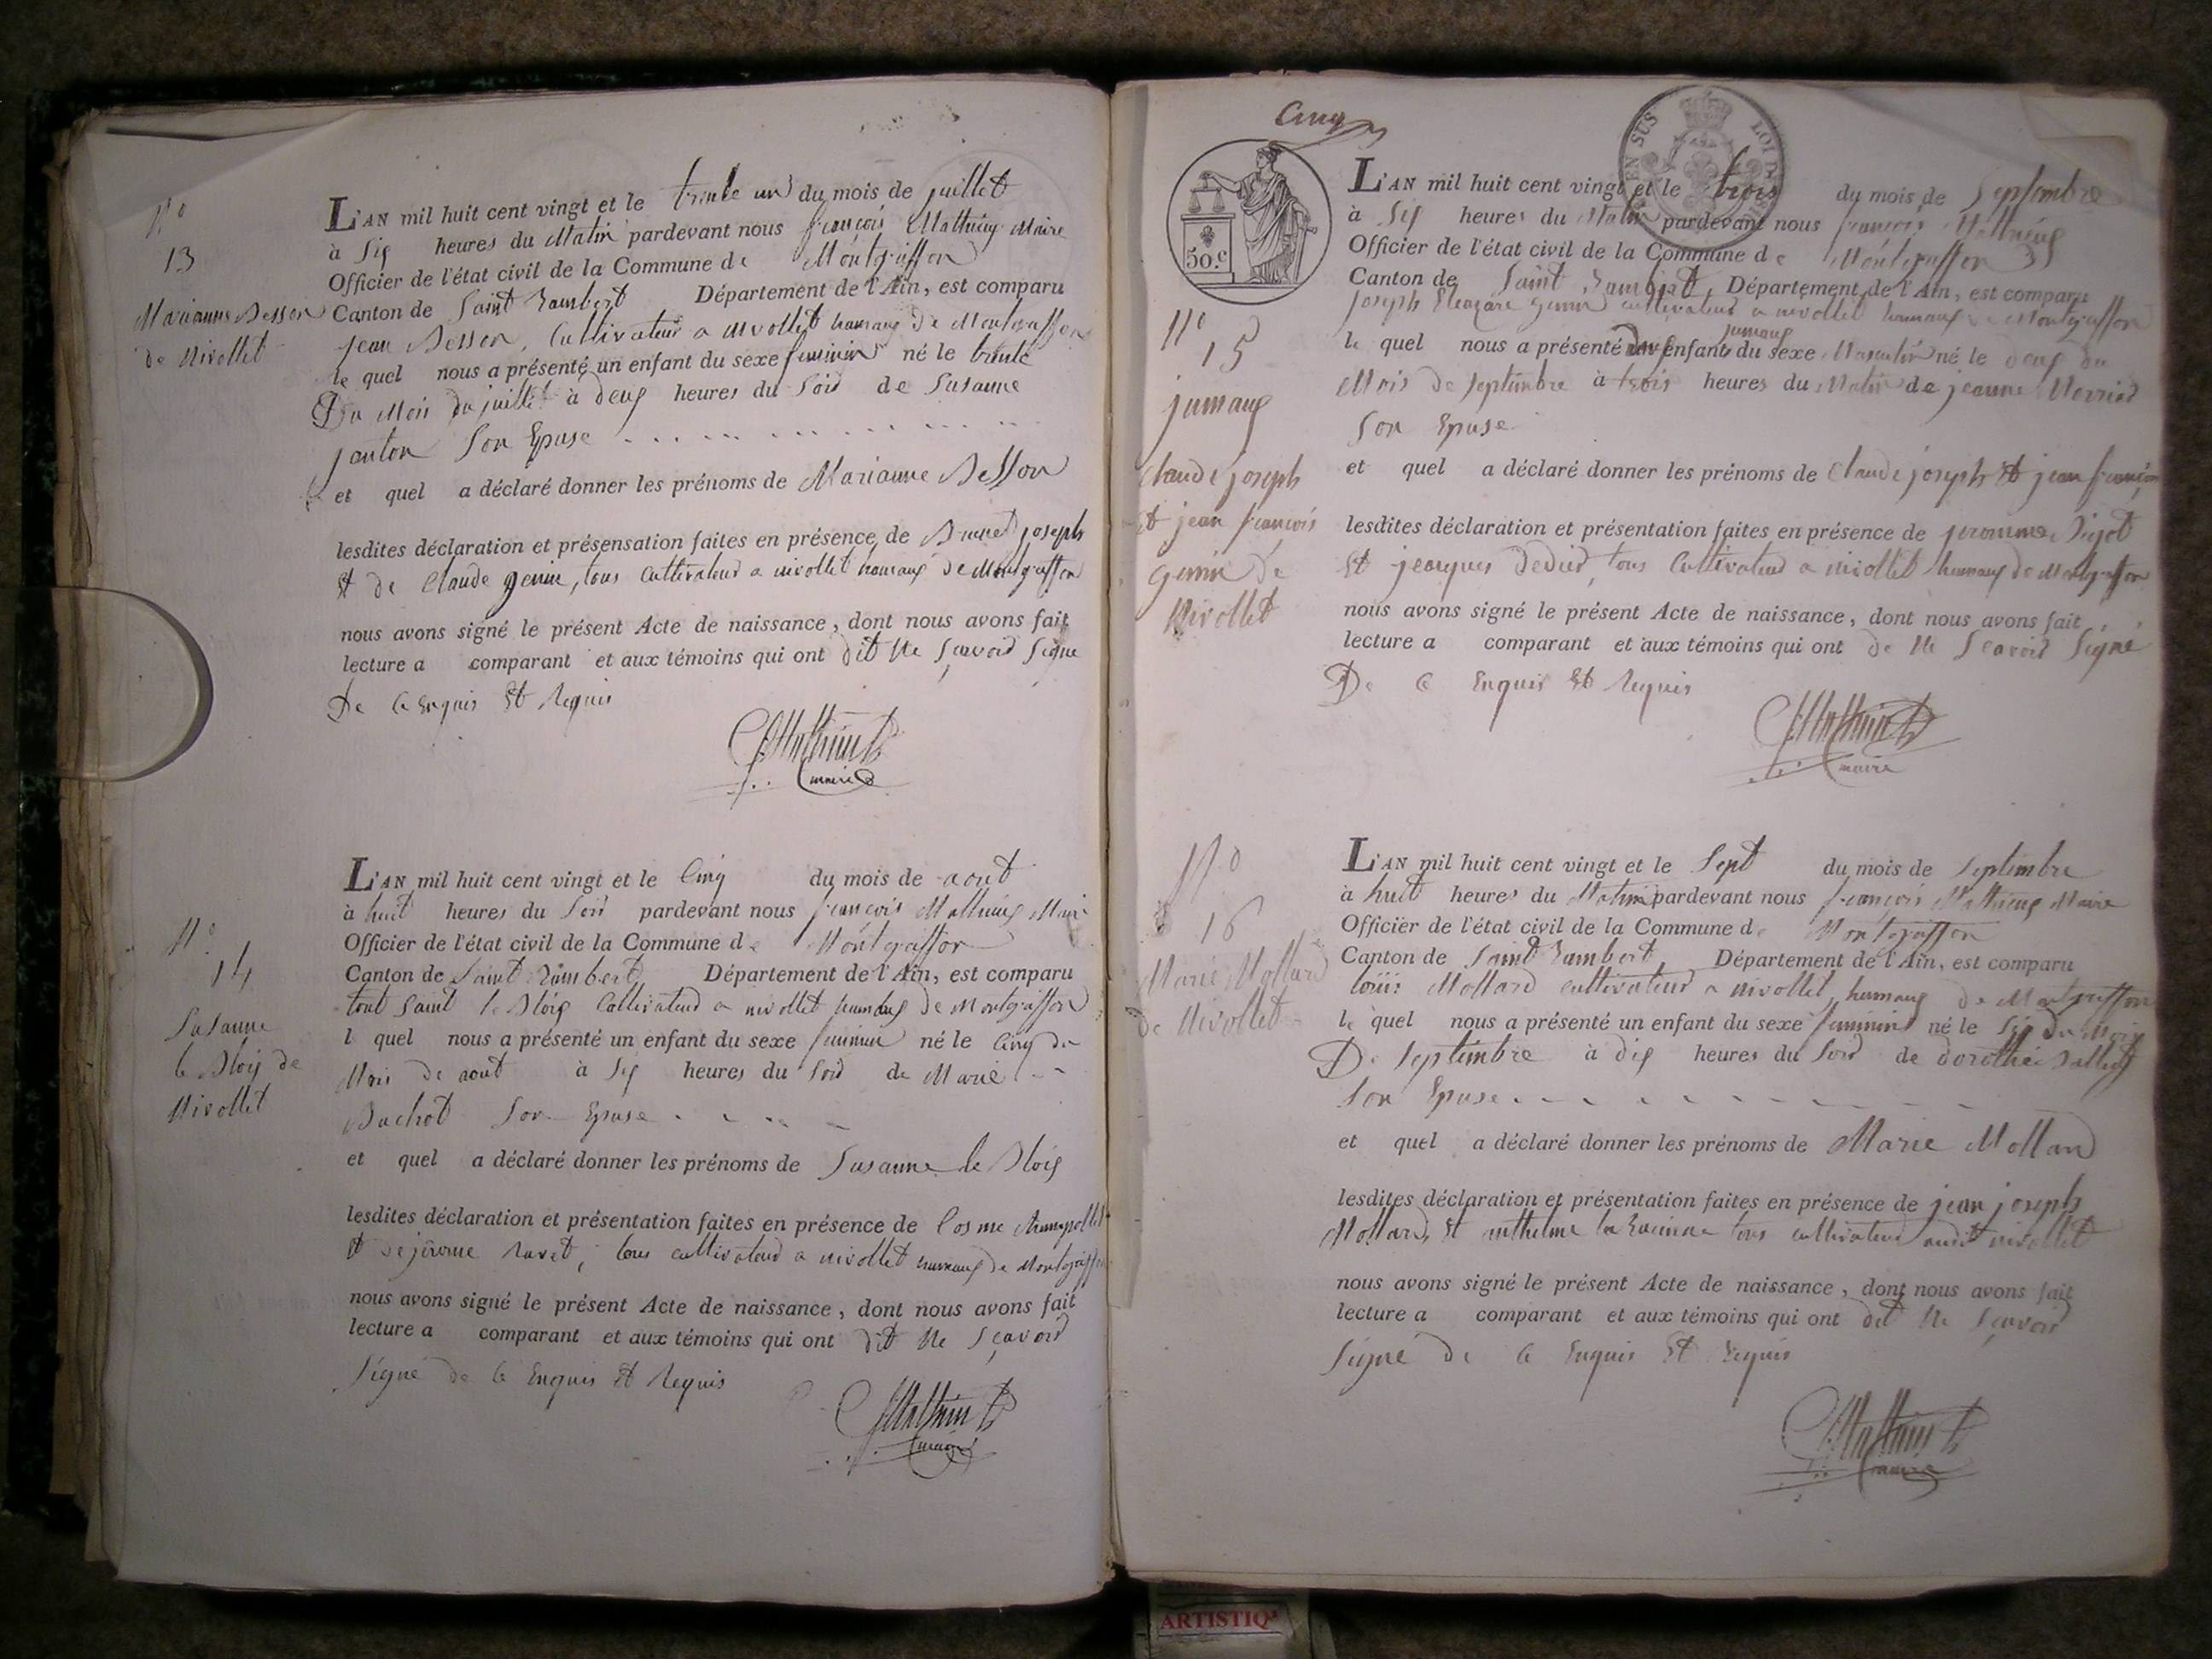 N.o
13
Marianne Besson
de Nivollet
L'AN mil huit cent vingt et le trente un du mois de juillet
à Six heures du Matin pardevant nous françois Mathieux Maire
Officier de l'état civil de la Commune de Montgriffon
Canton de Saint Rambert Département de l'Ain, est comparu
jean Besson, Cultivateur a nivollet hamaux De Montgriffon
le quel nous a présenté un enfant du sexe feminin né le trente
Du Mois du juillet à deux heures du Soir de Susanne
janton Son Epuse
et quel a déclaré donner les prénoms de Marianne Besson
lesdites déclaration et présensation faites en présence de Brunet joseph
Et de Claude genin, tous Cultivateur a nivollet hamaux De Montgriffon
nous avons signé le présent Acte de naissance, dont nous avons fait
lecture a comparant et aux témoins qui ont dit Ne Sçavoir Signe
De Ce Enquis Et Requis
Mathieux
maire
N.o
14
Susanne
le Bloix de
Nivollet
L'AN mil huit cent vingt et le Cinq du mois de aout
à huit heures du Soir pardevant nous françois Mathieux Mair
Officier de l'état civil de la Commune de Montgriffon
Canton de Saint Rambert Département de l'Ain, est comparu
tout Saint le Bloix Cultivateur a nivollet hamaux De Montgriffon
l quel nous a présenté un enfant du sexe feminin né le Cinq du
Mois de aout à Six heures du Soir de Marie
Buchot Son Epuse
et quel a déclaré donner les prénoms de Susanne le Bloix
lesdites déclaration et présentation faites en présence de Cosme
Et de jérome Ravet, tous cultivateur a nivollet hamaux de Montgriffon
nous avons signé le présent Acte de naissance, dont nous avons fait
lecture a comparant et aux témoins qui ont dit Ne Sçavoir
Signé de Ce Enquis Et Requis
Mathieux
maire
Cinq
50.c
EN SUS
LOI D
N.o
15
jumaux
Claude joseph
Et jean françois
genin de
Nivollet
L'AN mil huit cent vingt et le trois du mois de Septembre
à Six heures du Matin pardevant nous françois Mathieux
Officier de l'état civil de la Commune de Montgriffon
Canton de Saint Rambert, Département de l'Ain, est comparu
joseph Eleazare genin cultivateur a nivollet hamaux de Montgriffon
jumaux
le quel nous a présenté deux enfants du sexe Masculin né le deux du
Mois De Septembre à trois heures du Matin de jeanne
Son Epuse
et quel a déclaré donner les prénoms de Claude joseph Et jean françois
lesdites déclaration et présentation faites en présence de
Et jeacques Dedier, tous Cultivateur a nivollet hamaux de Montgriffon
nous avons signé le présent Acte de naissance, dont nous avons fait
lecture a comparant et aux témoins qui ont de Ne Scavoir Signé
De Ce Enquis Et Requis
Mathieux
maire
N.o
16
Marie Mollard
de Nivollet
L'AN mil huit cent vingt et le Sept du mois de Septembre
à huit heures du Matin pardevant nous françois Mathieux Maire
Officier de l'état civil de la Commune de Montgriffon
Canton de Saint Rambert, Département de l'Ain, est comparu
louis Mollard cultivateur a nivollet hamaux De Montgriffon
le quel nous a présenté un enfant du sexe feminin né le Six du Mois
De Septembre à dix heures du Soir de dorothée
Son Epuse
et quel a déclaré donner les prénoms de Marie Mollard
lesdites déclaration et présentation faites en présence de jean joseph
Mollard, Et anthelme la Racinne tous cultivateur audit nivollet
nous avons signé le présent Acte de naissance, dont nous avons fait
lecture a comparant et aux témoins qui ont dit Ne Sçavoir
Signé de Ce Enquis Et Requis
Mathieux
maire
ARTISTIQ